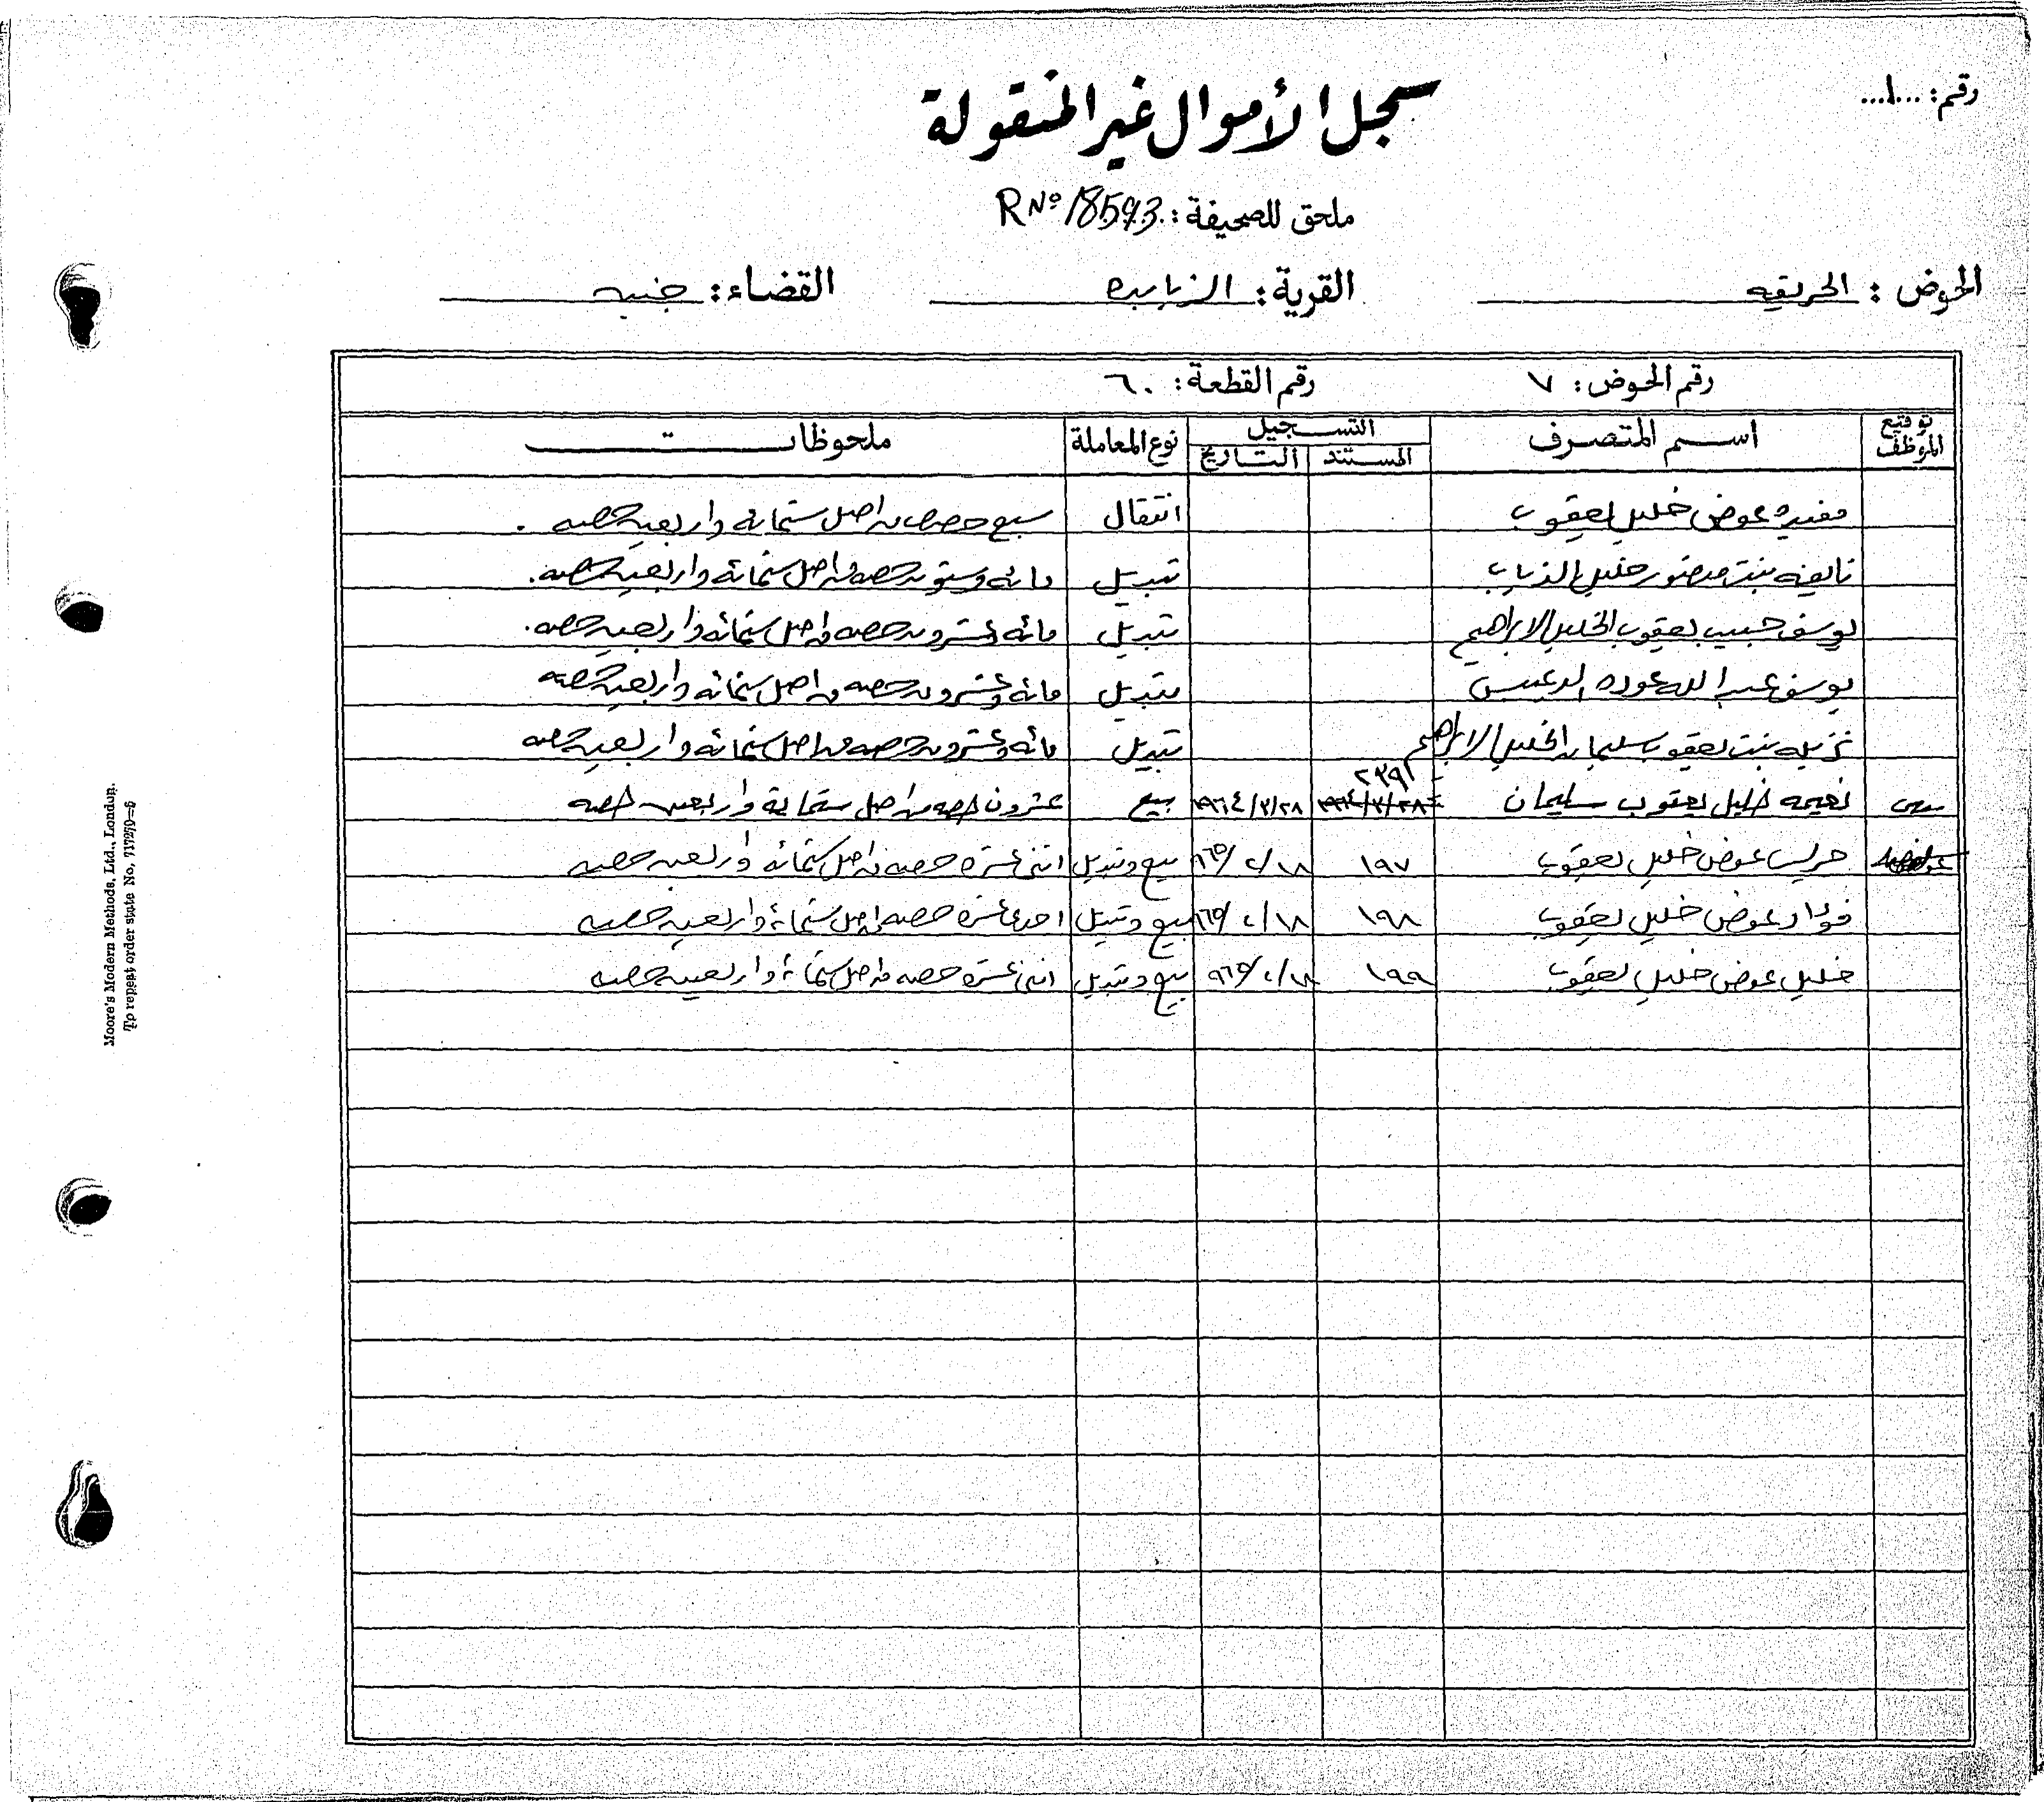 رقم: ...١...
سجل الأموال غير المنقولة
ملحق للصحيفة: R Nº 18593
الحوض: الحريقه القرية: الزبابده القضاء: جنين
رقم الحوض: ٧ رقم القطعة: ٦٠
توقيع الموظف اسم المتصرف التسجيل نوع المعاملة ملحوظات
المستند التاريخ
مفيده عوض خليل يعقوب انتقال سبع حصص من اصل ستمائة واربعين حصه .
نايفه بنت منصور خليل الذياب تبديل مائه وستون حصه من اصل ستمائة واربعين حصه .
يوسف حبيب يعقوب الخليل الابراهيم تبديل مائه وعشرون حصه من اصل ستمائة واربعين حصه .
يوسف عبد الله عوده الدعيبس تبديل مائه وعشرون حصه من اصل ستمائة واربعين حصه
نزيله بنت يعقوب سليمان الخليل الابراهيم تبديل مائه وعشرون حصه من اصل ستمائة واربعين حصه
٢٣٩١
نعيمه خليل يعقوب سليمان ١٩٦٤/٣/٢٨ ١٩٦٤/٣/٢٨ بيع عشرون حصه من اصل ستماية واربعين حصه
جريس عوض خليل يعقوب ١٩٧ ٩٦٥/٢/١٨ بيع وتبديل اثني عشرة حصه من اصل ستمائة واربعين حصه
فؤاد عوض خليل يعقوب ١٩٨ ٩٦٥/٢/١٨ بيع وتبديل احدى عشرة حصه من اصل ستمائة واربعين حصه
خليل عوض خليل يعقوب ١٩٩ ٩٦٥/٢/١٨ بيع وتبديل اثني عشرة حصه من اصل ستمائة واربعين حصه
Moore's Modern Methods, Ltd., London.
To repeat order state No. 717270—5